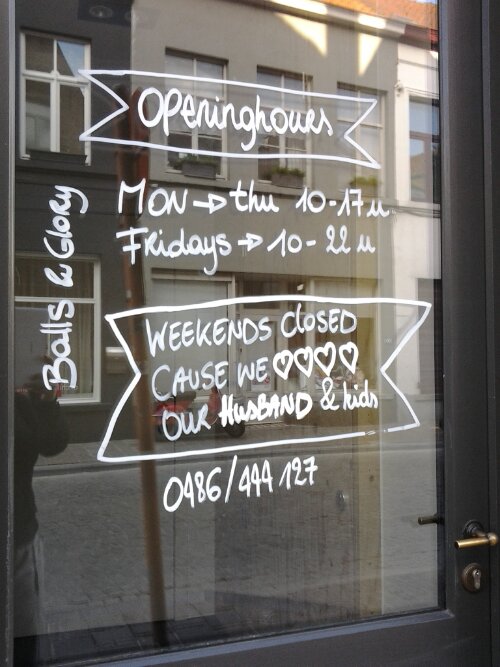 Openinghours
MON → thu 10-17 u
Fridays → 10-22 u
Balls & Glory
WEEKENDS CLOSED
CAUSE WE ♡♡♡♡
OUR HusBAND & kids
0486/444 127